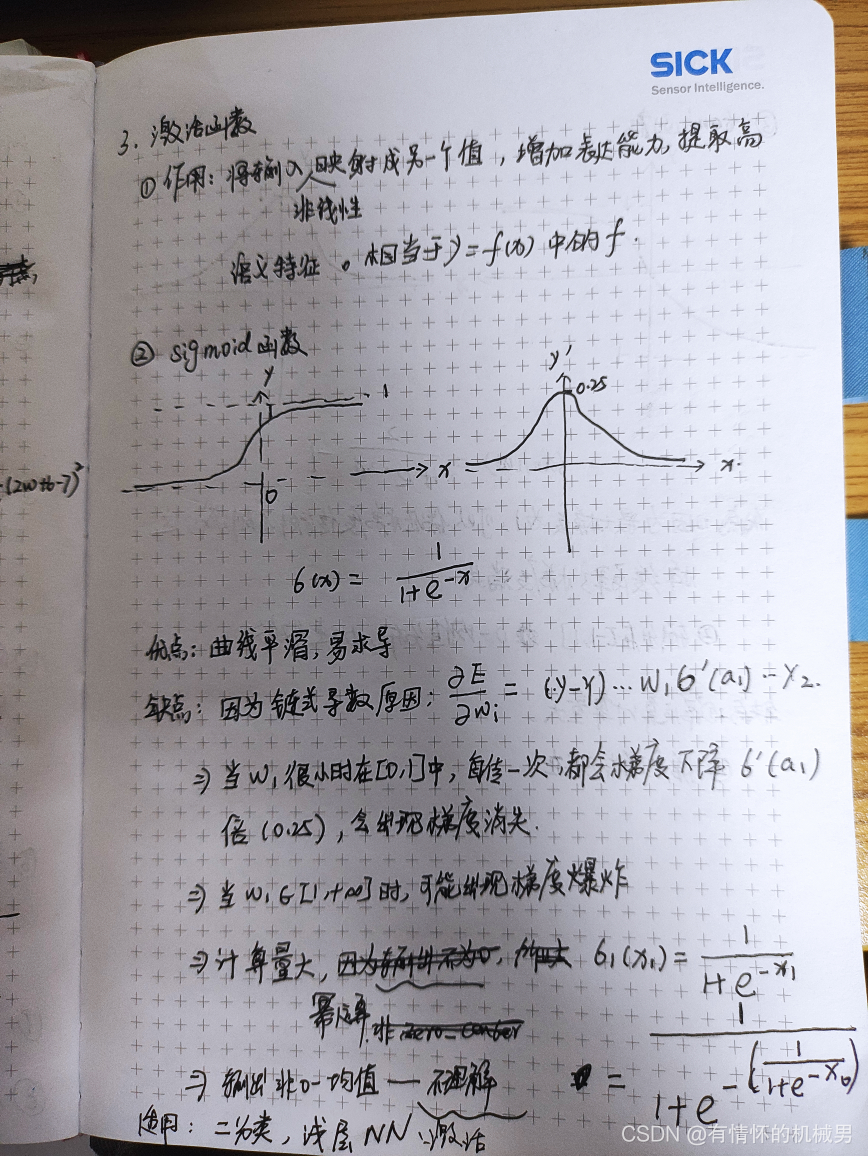 SICK
Sensor Intelligence.
3. 激活函数
① 作用：将输入映射成另一个值，增加表达能力，提取高
非线性
语义特征。相当于y=f(x)中的f.
② sigmoid函数
y
1
0
x
y'
0.25
x.
б(x) = 1/(1+e^-x)
优点：曲线平滑，易求导
缺点：因为链式导数原因：∂E/∂wi = (y-Y)…W1б'(a1)…Y2.
⇒ 当W1很小时在[0,1]中，每传一次，都会梯度下降б'(a1)
倍(0.25)，会出现梯度消失.
⇒ 当W1∈[1,+∞]时，可能出现梯度爆炸
⇒ 计算量大，б1(x1) = 1/(1+e^-x1)
幂运算.非
⇒ 输出非0-均值 — 不理解 = 1/(1+e^-(1/(1+e^-x0)))
适用：二分类，浅层NN
激活
-(2w+b-7)²
CSDN @有情怀的机械男